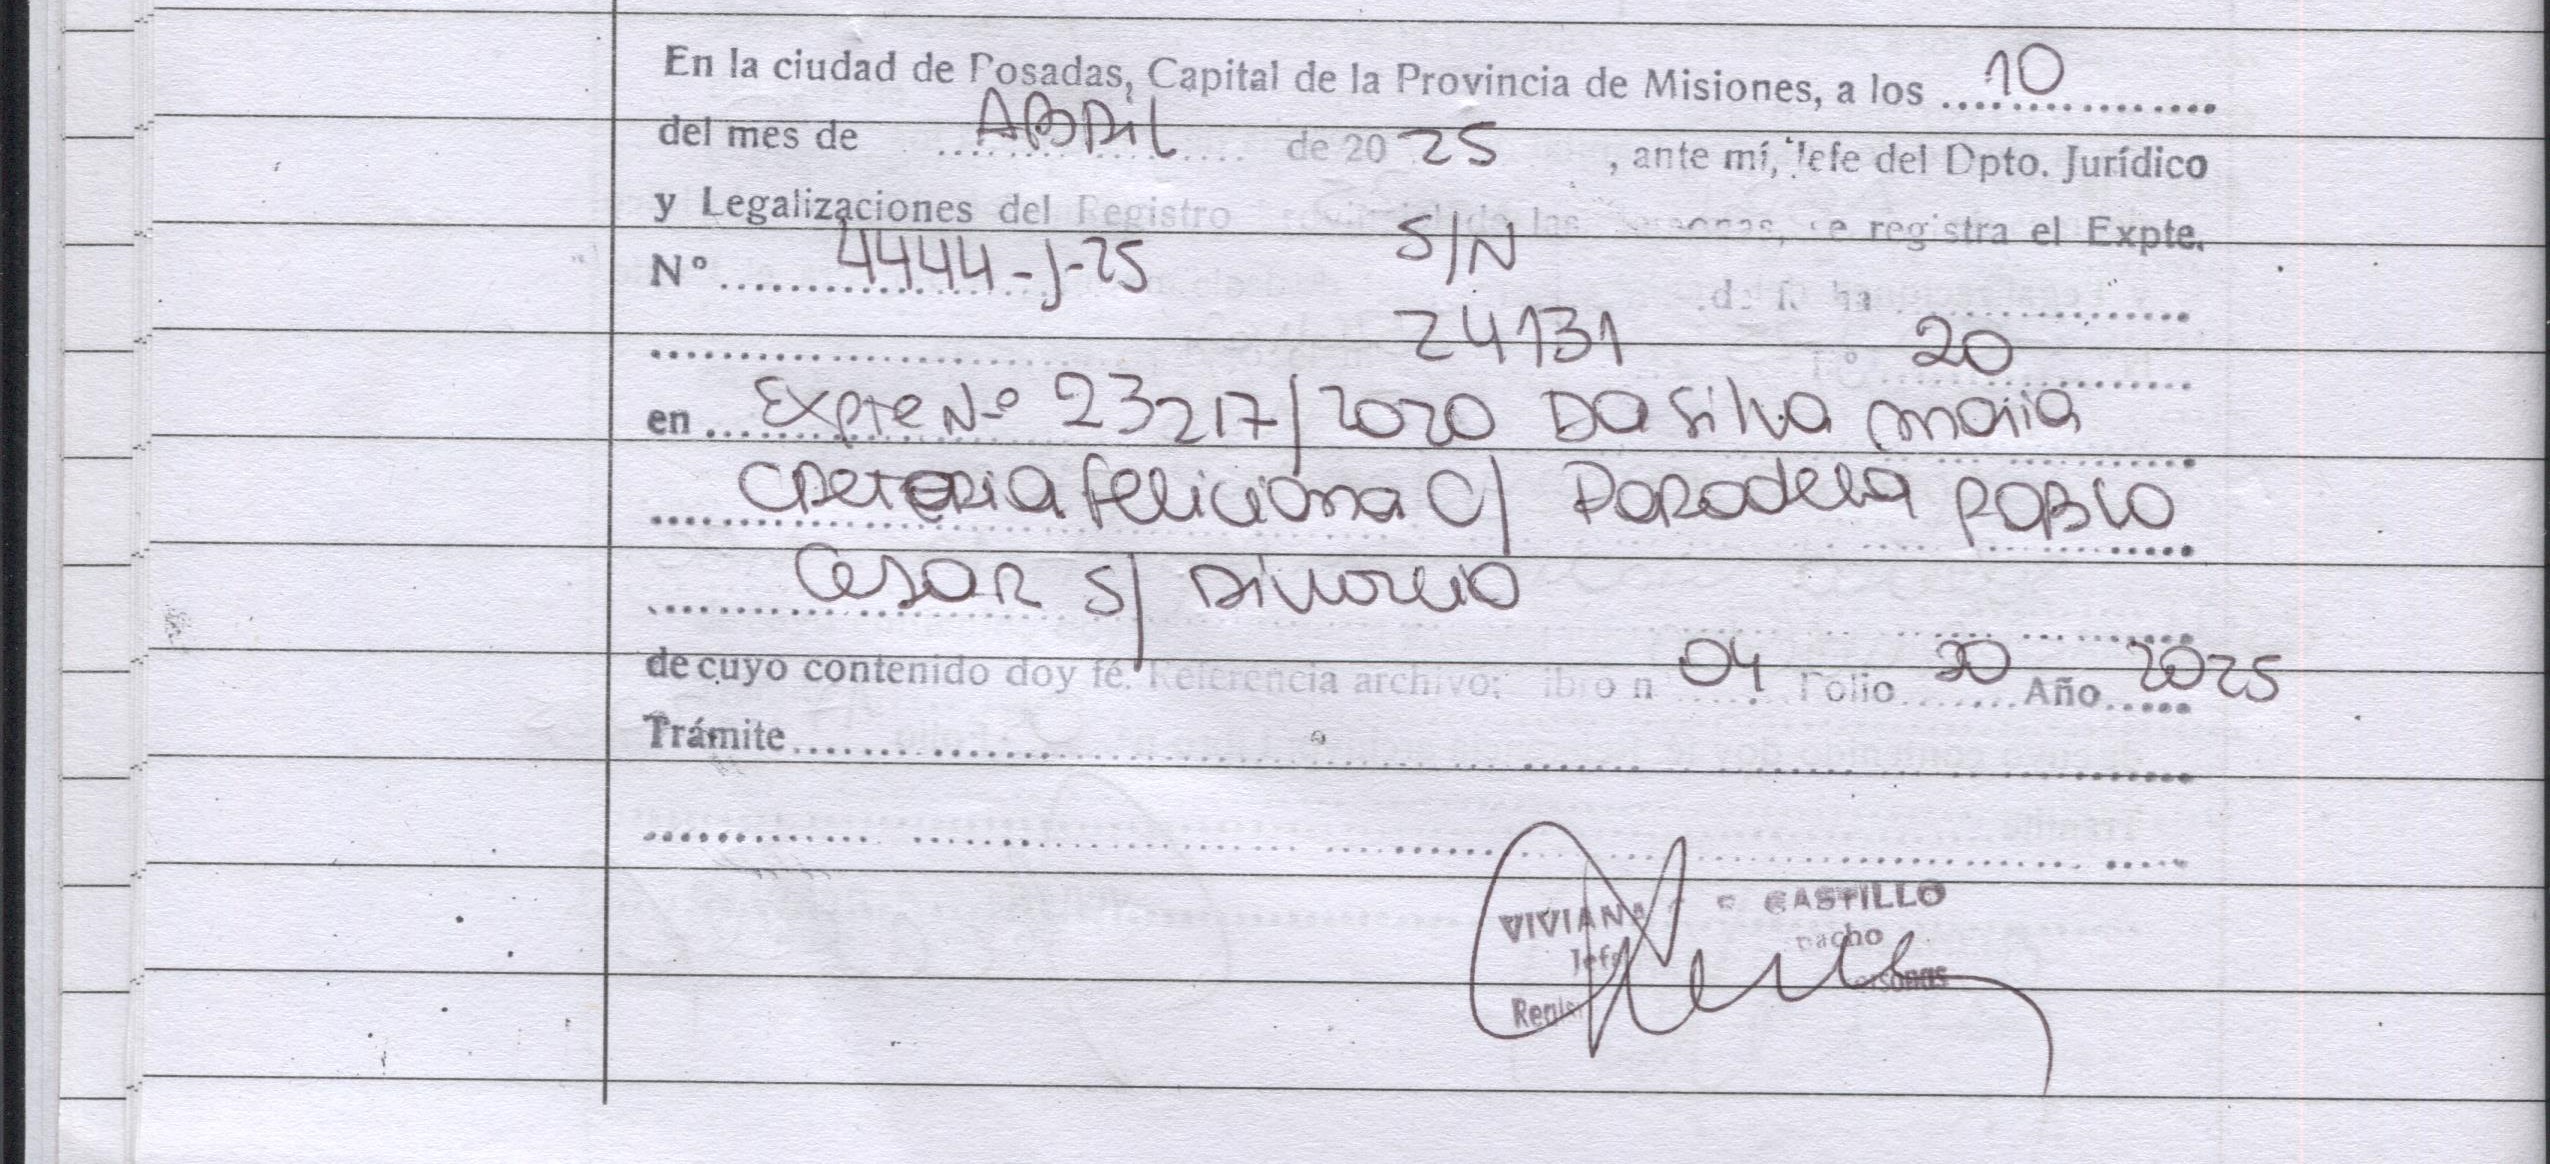 En la ciudad de Posadas, Capital de la Provincia de Misiones, a los 10
del mes de ABRIL de 20 25, ante mí, Jefe del Dpto. Jurídico
y Legalizaciones del Registro de las Personas, se registra el Expte.
N° 4444-J-25 S/N
24131 20
en Expte N° 23217/2020 Da Silva Maria
Feliciana C/ Paradela Pablo
Cesar S/ Divorcio
de cuyo contenido doy fé. Referencia archivo: Libro n 04 Folio 30 Año 2025
Trámite
VIVIANA CASTILLO
Jefe